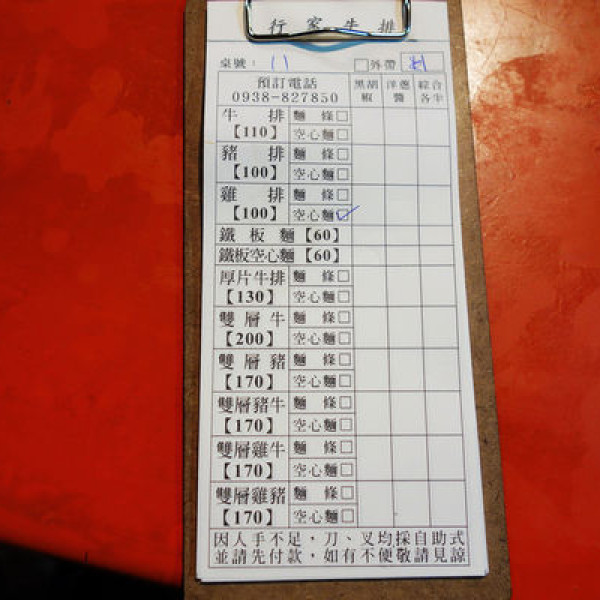 行家牛排
桌號： 11 □外帶
預訂電話 黑胡椒 洋蔥醬 綜合各半
0938-827850
牛排 麵條□
【110】 空心麵□
豬排 麵條□
【100】 空心麵□
雞排 麵條□
【100】 空心麵☑
鐵板麵【60】
鐵板空心麵【60】
厚片牛排 麵條□
【130】 空心麵□
雙層牛 麵條□
【200】 空心麵□
雙層豬 麵條□
【170】 空心麵□
雙層豬牛 麵條□
【170】 空心麵□
雙層雞牛 麵條□
【170】 空心麵□
雙層雞豬 麵條□
【170】 空心麵□
因人手不足，刀、叉均採自助式
並請先付款，如有不便敬請見諒